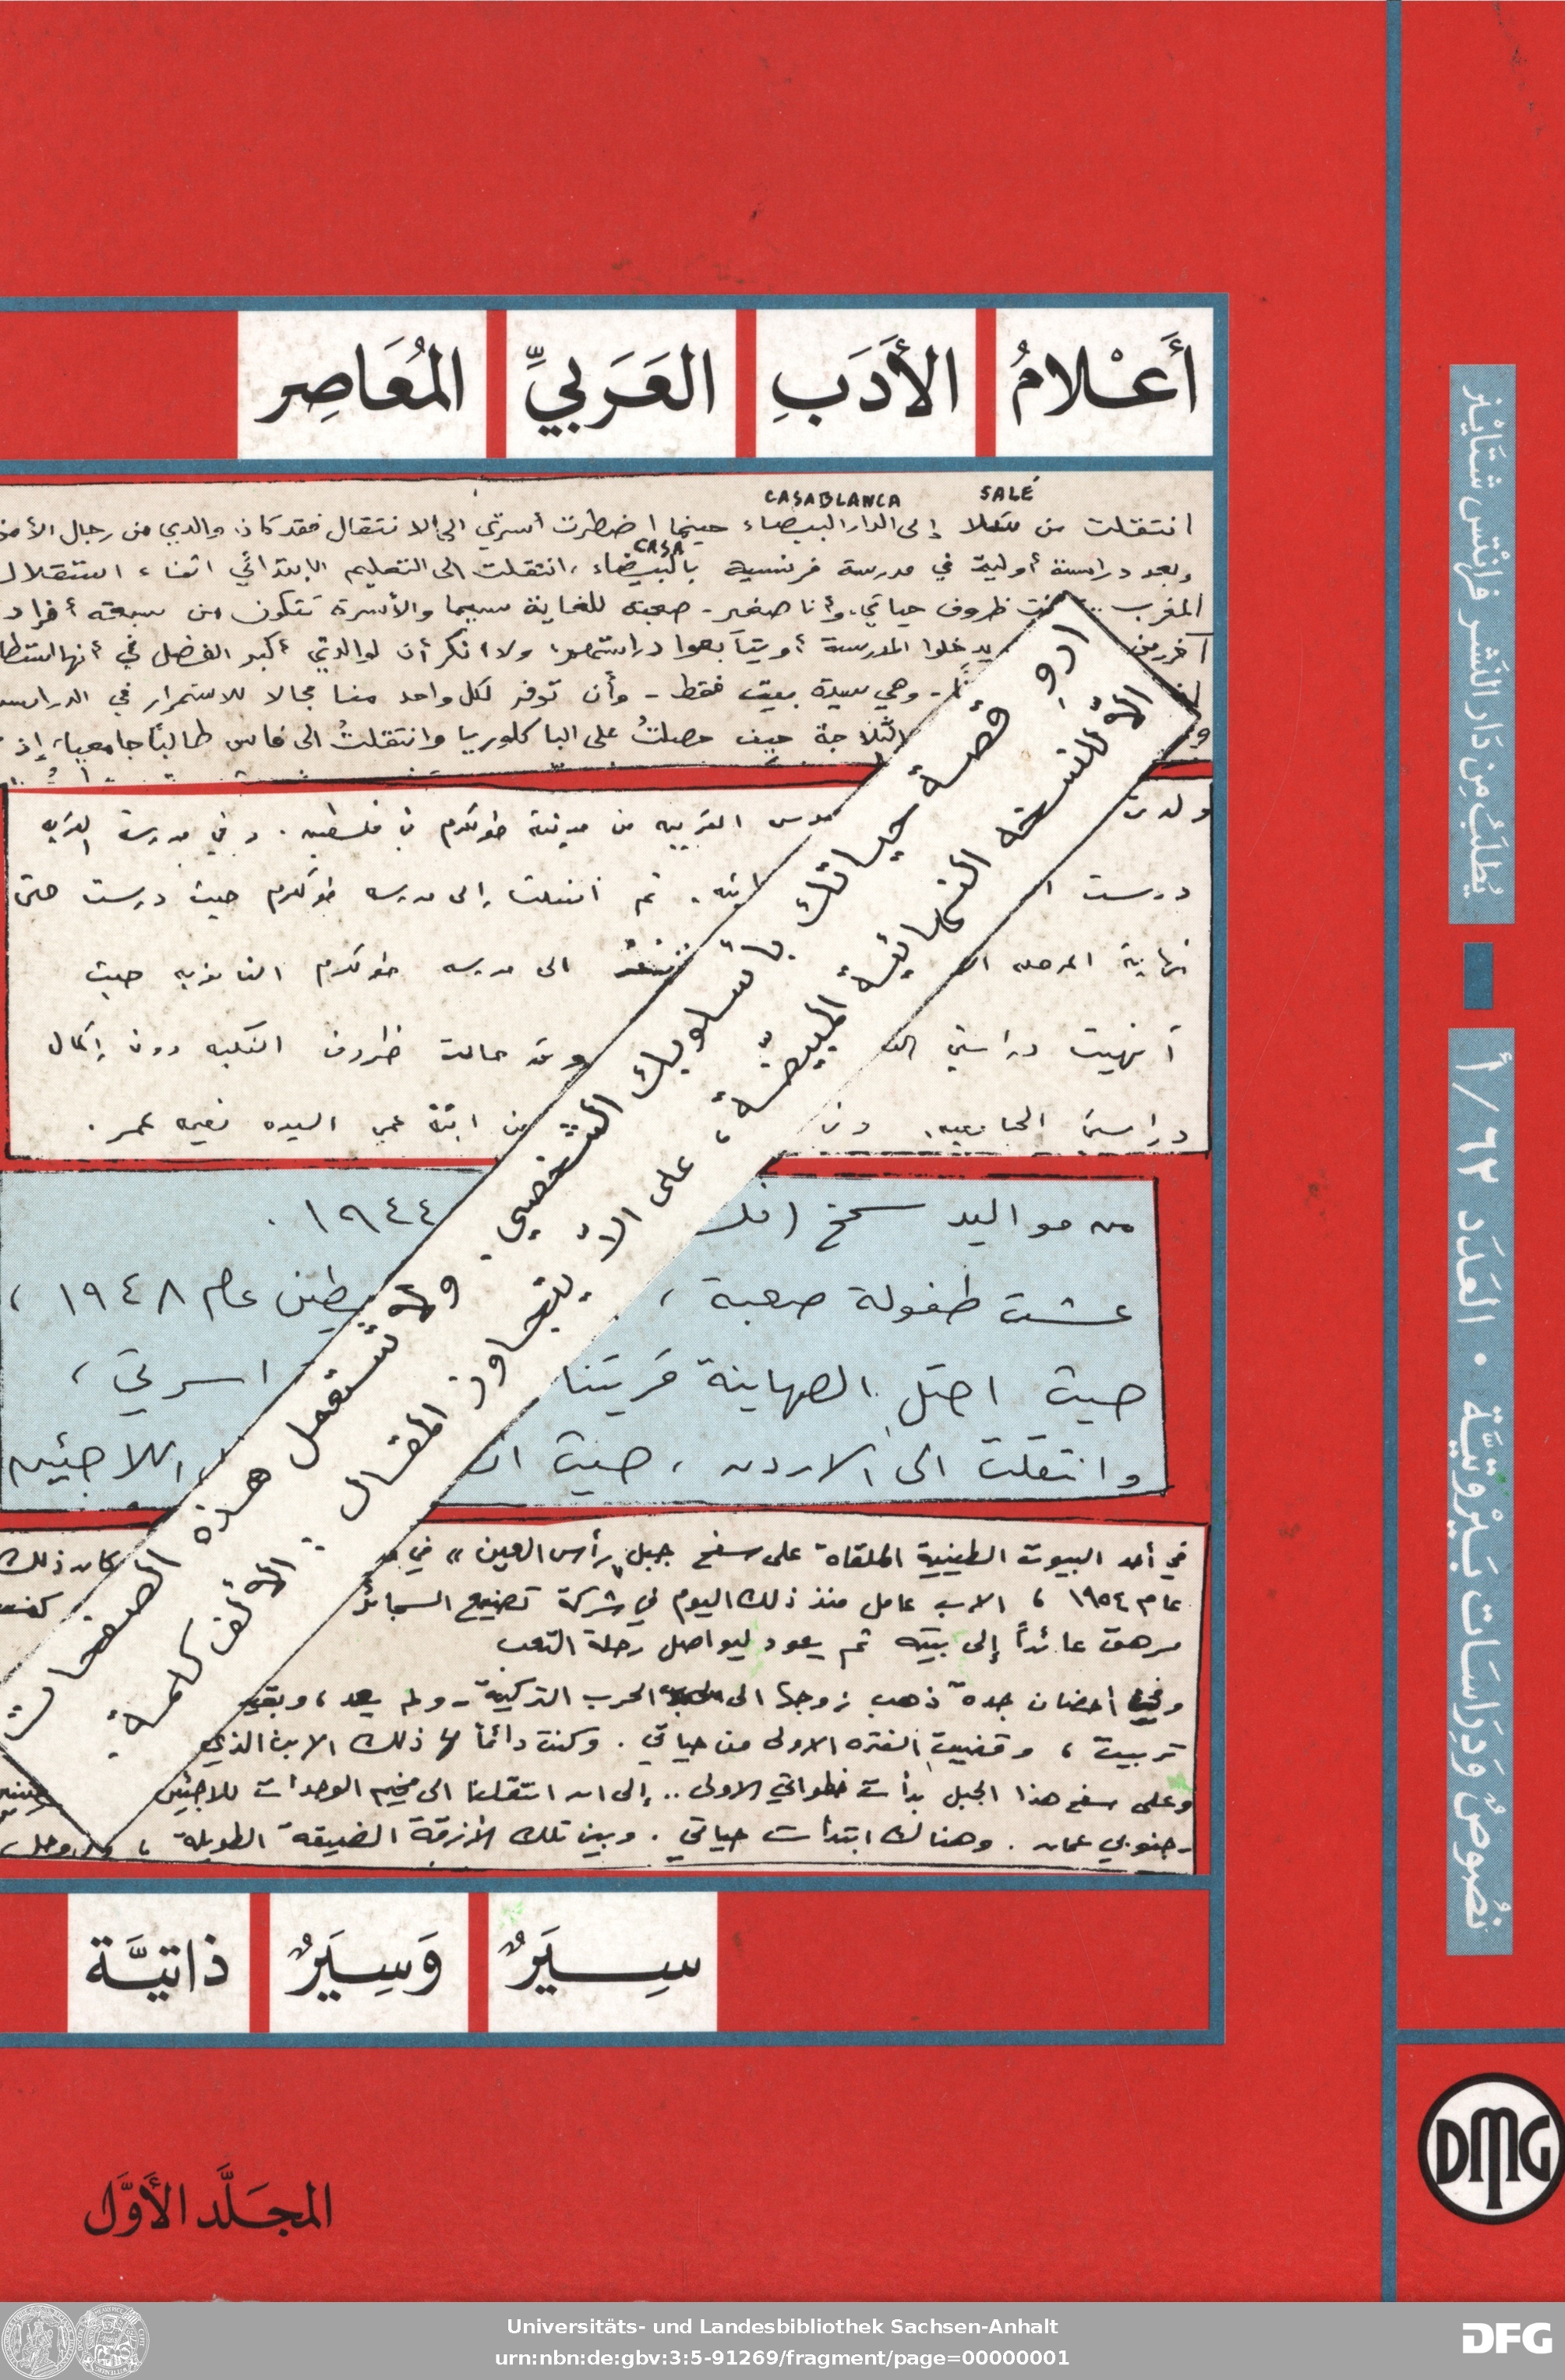 أَعْلامُ الأَدَبِ العَرَبيِّ المُعَاصِر
CASABLANCA SALÉ
انتقلت من سلا إلى الدار البيضاء حينما اضطرت أسرتي الى الانتقال فقد كان والدي من رجال الأمن
CASA
وبعد دراسة أولية في مدرسة فرنسية بالبيضاء، انتقلت الى التعليم الابتدائي اثناء استقلال
المغرب .. ظروف حياتي، وأنا صغير - صعبة للغاية سيما والأسرة تتكون من سبعة أفراد
آخرين يدخلوا المدرسة أو يتابعوا دراستهم، ولا انكر أن لوالدتي أكبر الفضل في أنها استطا
- وهي سيدة بيت فقط - وأن توفر لكل واحد منا مجالا للاستمرار في الدراسة
حصلتُ على الباكلوريا وانتقلتُ الى فاس طالبًا جامعيا، إذ
ولدت القريبه من مدينة طولكرم في فلسطين . وفي مدرسة القريه
درست ثم انتقلت إلى مدرسه طولكرم حيث درست حتى
نهاية المرحله الى مدرسه طولكرم الثانويه حيث
أنهيت دراستي وقد حالت ظروف النكبه دون إكمال
دراستي الجامعيه. من ابنة عمي السيده نعيمه عمر .
من مواليد ١٩٤٤ .
عشت طفولة صعبة ، عام ١٩٤٨ ،
حيث احتل الصهاينة قريتنا اسرتي ،
وانتقلت الى الاردن ، حيث اللاجئين
في أحد البيوت الطينية الملقاة على سفح جبل "رأس العين" في كان ذلك
عام ١٩٥٤ ، الاب عامل منذ ذلك اليوم في شركة تصنيع السجائر
مرهق عائداً إلى بيته ثم يعود ليواصل رحلة التعب
أحضان جدة ذهب زوجها الى الحرب التركية - ولم يعد ، وبقي
تربيت ، وقضيت الفتره الاولى من حياتي . وكنت دائماً لها ذلك الابن الذي
وعلى سفح هذا الجبل بدأت خطواتي الاولى .. إلى ان انتقلنا الى مخيم الوحدات للاجئين
جنوبي عمان . وهناك ابتدأت حياتي . وبين تلك الأزقة الضيقة الطويلة ،
اروِ قصة حياتك بأسلوبك الشخصي. ولا تستعمل هذه الصفحات
إلا للنسخة النهائية المبيّضة، على الا يتجاوز المقال الألف كلمة.
سِيَرٌ وَسِيَرٌ ذاتيَّة
المجَلَّد الأَوَّل
يُطلَبُ مِن دَار النَشر فرانتْس شتَايْنر
نُصُوصٌ وَدِرَاسَات بَيْروتيَّة • العَدَد ٦٢/أ
DMG
Universitäts- und Landesbibliothek Sachsen-Anhalt
urn:nbn:de:gbv:3:5-91269/fragment/page=00000001
DFG